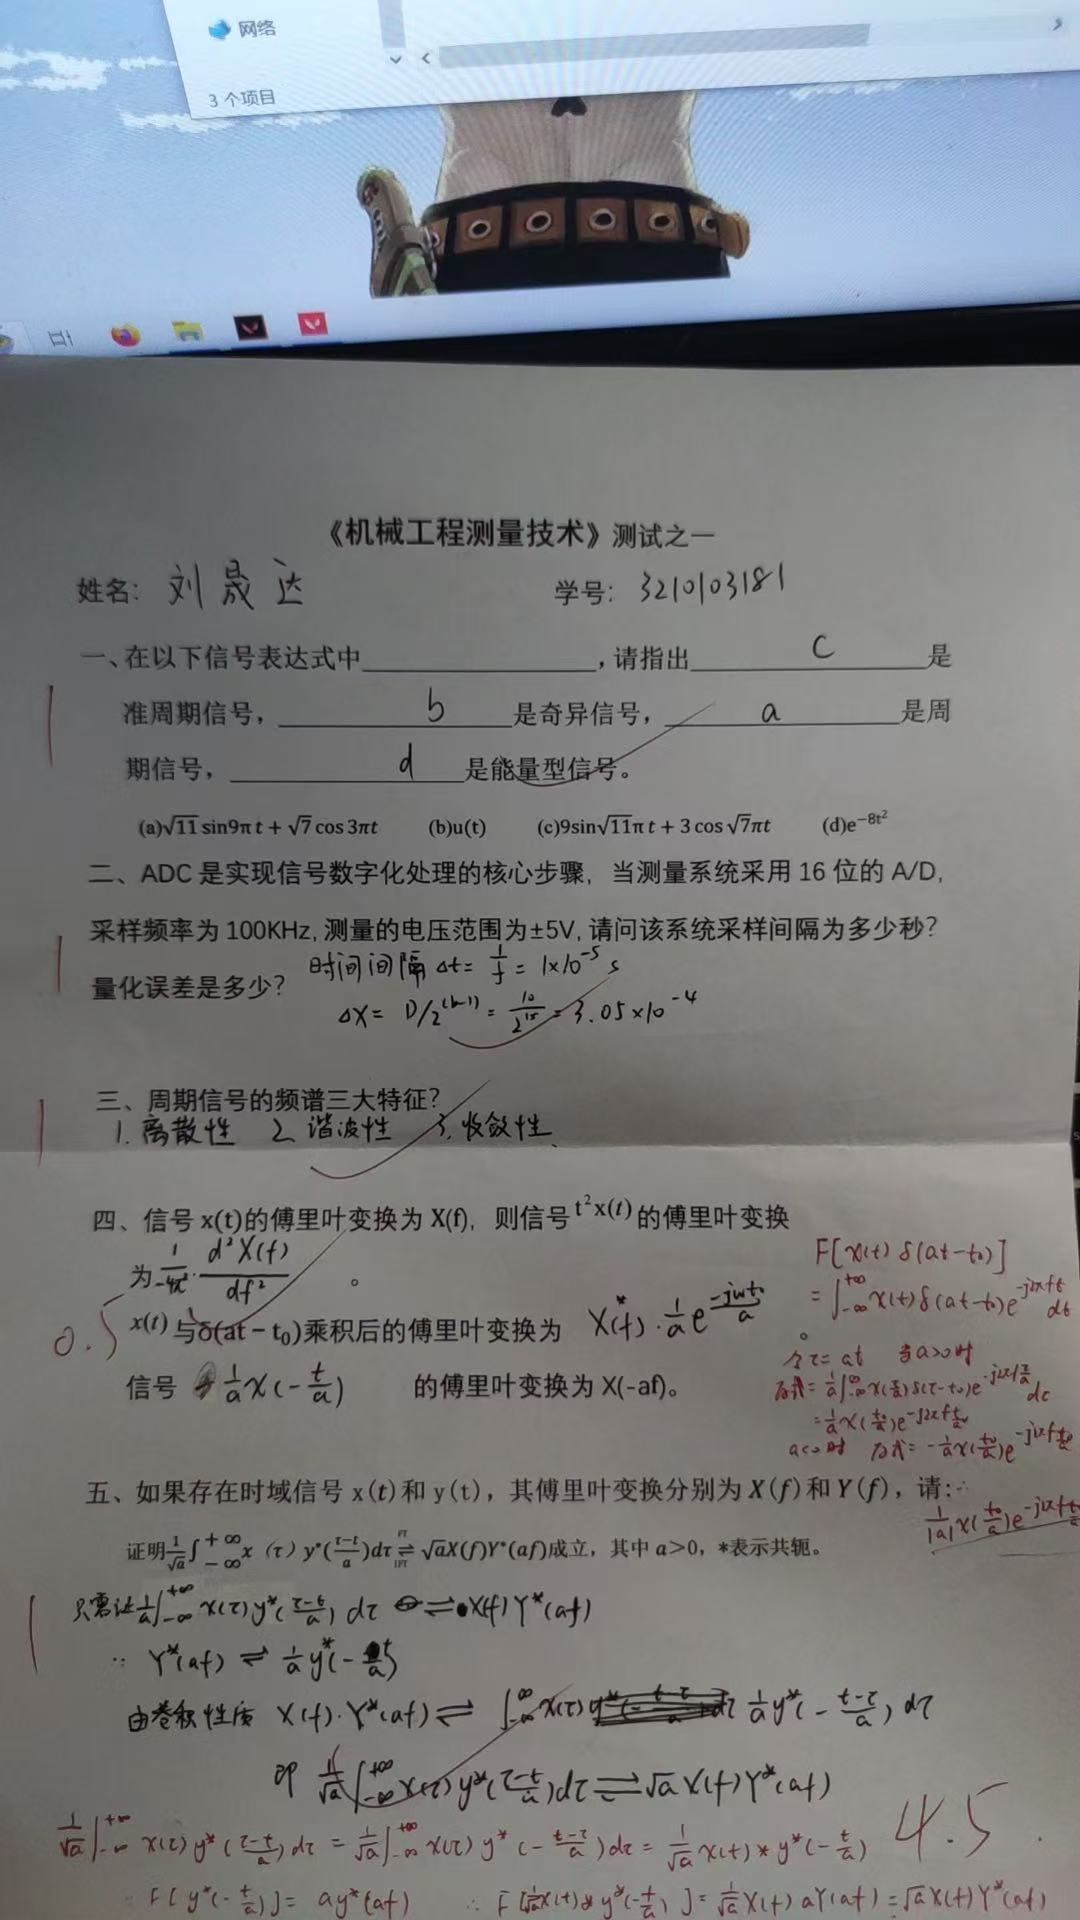 网络
3 个项目
《机械工程测量技术》测试之一
姓名: 刘晟达 学号: 3210103181
一、在以下信号表达式中____,请指出 c 是
准周期信号, b 是奇异信号, a 是周
期信号, d 是能量型信号。
(a)√11 sin9πt + √7 cos3πt (b)u(t) (c)9sin√11πt + 3cos√7πt (d)e^{-8t²}
二、ADC 是实现信号数字化处理的核心步骤, 当测量系统采用 16 位的 A/D,
采样频率为 100KHz, 测量的电压范围为±5V, 请问该系统采样间隔为多少秒?
时间间隔 Δt = 1/f = 1×10^{-5} s
量化误差是多少?
ΔX = D/2^{(b-1)} = 10/2^{15} = 3.05×10^{-4}
三、周期信号的频谱三大特征?
1. 离散性 2. 谐波性 3. 收敛性
四、信号 x(t)的傅里叶变换为 X(f), 则信号 t²x(t) 的傅里叶变换
为 1/-4π² · d²X(f)/df² 。
0.5
x(t) 与δ(at − t₀)乘积后的傅里叶变换为 X(f) * · 1/a e^{-jωt₀/a} 。
信号 1/a X(-t/a) 的傅里叶变换为 X(-af)。
F[x(t) δ(at-t₀)]
= ∫_{-∞}^{+∞} x(t)δ(at-t₀)e^{-j2πft} dt
令τ= at 当a>0时
= 1/a x(t₀/a)e^{-j2πft₀/a}
a<0时
1/|a| x(t₀/a)e^{-j2πft₀/a}
五、如果存在时域信号 x(t)和 y(t), 其傅里叶变换分别为 X(f)和 Y(f), 请:
证明 1/√a ∫_{-∞}^{+∞} x (τ) y*((τ-t)/a)dτ ⇌ √aX(f)Y*(af)成立, 其中 a>0, *表示共轭。
FT
IFT
1/a ∫_{-∞}^{+∞} x(τ)y*((τ-t)/a) dτ ⇌ X(f)Y*(af)
∵ Y*(af) ⇌ 1/a y*(-t/a)
由卷积性质 X(f)·Y*(af) ⇌ ∫_{-∞}^{∞} x(τ) 1/a y*(-(t-τ)/a) dτ
即 1/√a ∫_{-∞}^{+∞} x(τ)y*((τ-t)/a)dτ ⇌ √a X(f)Y*(af)
4.5
1/√a ∫_{-∞}^{+∞} x(τ) y*((τ-t)/a)dτ = 1/√a ∫_{-∞}^{+∞} x(τ) y*(-(t-τ)/a)dτ = 1/√a x(t) * y*(-t/a)
∵ F[y*(-t/a)] = ay*(af) ∴ F[1/√a x(t) * y*(-t/a)] = 1/√a X(f) aY(af) = √a X(f)Y*(af)